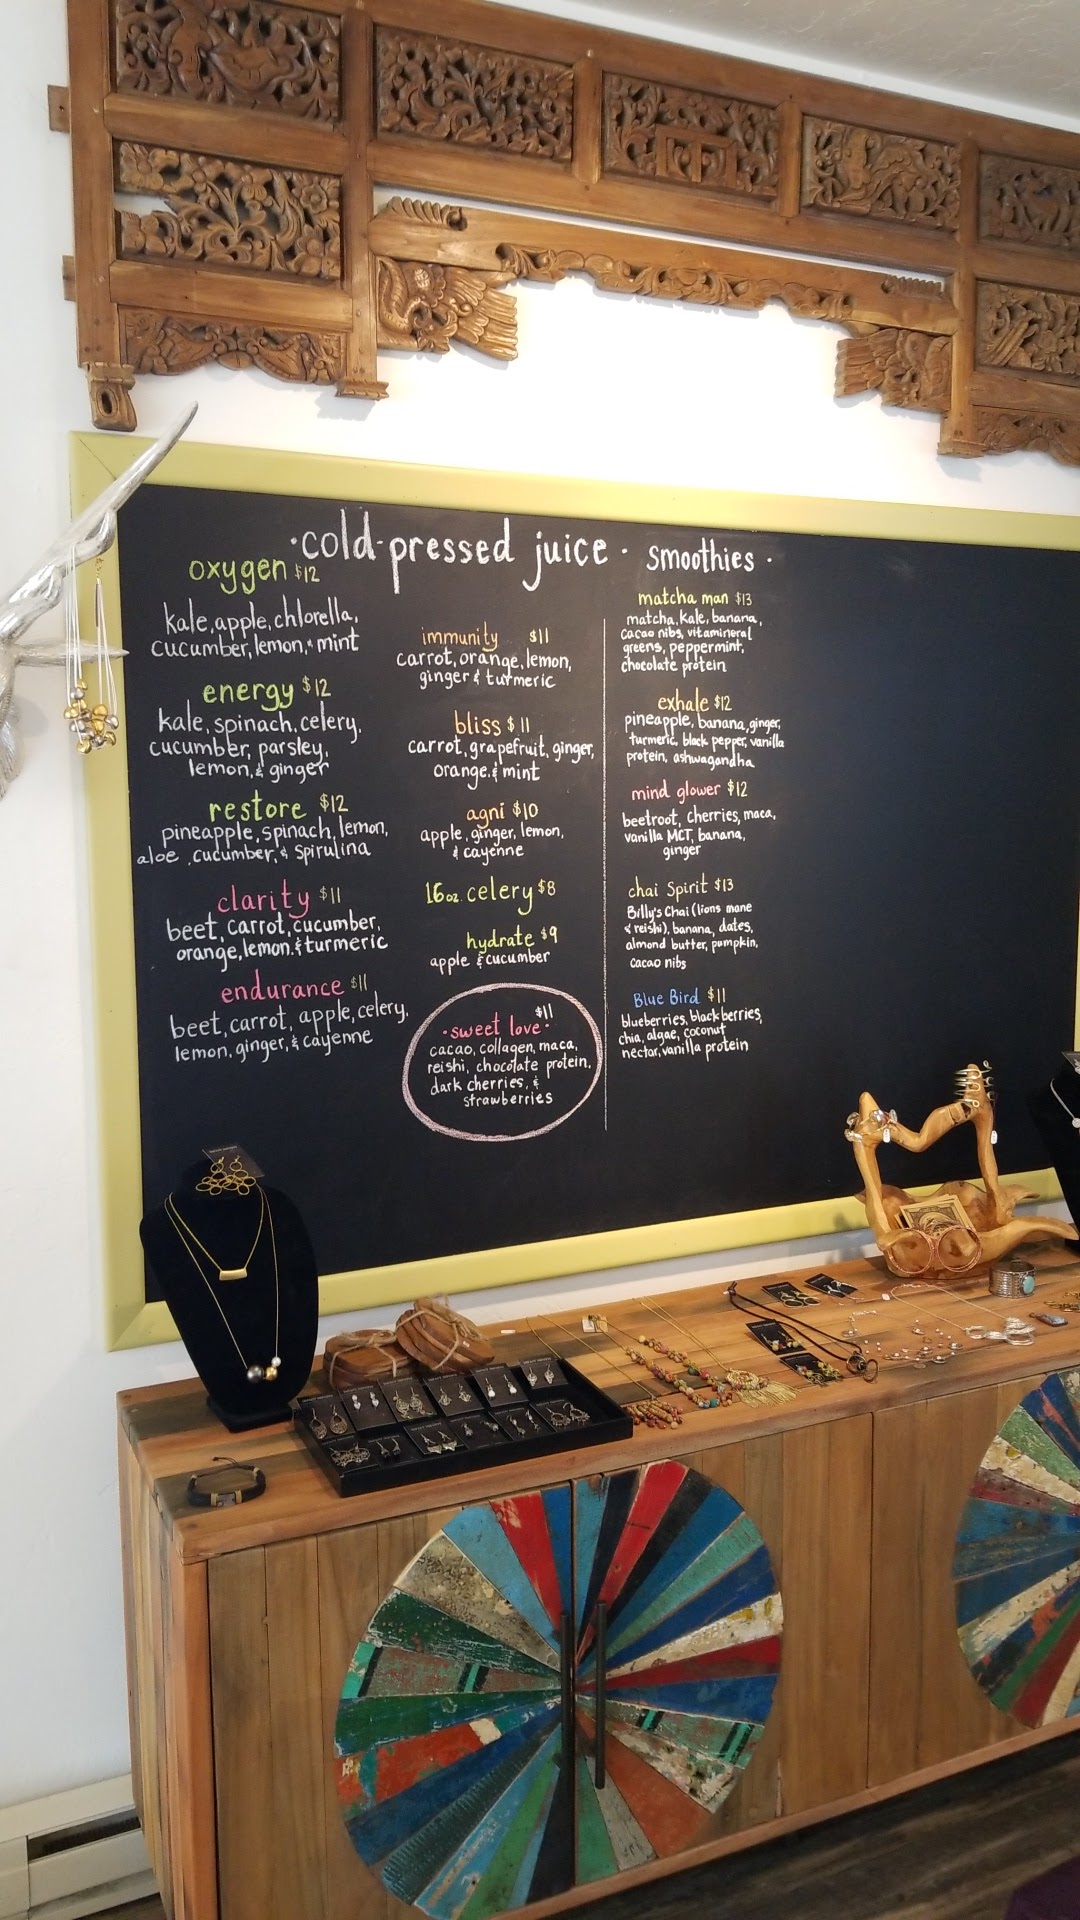 ·cold-pressed juice·
oxygen $12
kale, apple, chlorella,
cucumber, lemon, & mint
energy $12
kale, spinach, celery,
cucumber, parsley,
lemon, & ginger
restore $12
pineapple, spinach, lemon,
aloe, cucumber, & spirulina
clarity $11
beet, carrot, cucumber,
orange, lemon, & turmeric
endurance $11
beet, carrot, apple, celery,
lemon, ginger, & cayenne
immunity $11
carrot, orange, lemon,
ginger & turmeric
bliss $11
carrot, grapefruit, ginger,
orange, & mint
agni $10
apple, ginger, lemon,
& cayenne
16oz. celery $8
hydrate $9
apple & cucumber
$11
·sweet love·
cacao, collagen, maca,
reishi, chocolate protein,
dark cherries, &
strawberries
smoothies ·
matcha man $13
matcha, kale, banana,
cacao nibs, vitamineral
greens, peppermint,
chocolate protein
exhale $12
pineapple, banana, ginger,
turmeric, black pepper, vanilla
protein, ashwagandha
mind glower $12
beetroot, cherries, maca,
vanilla MCT, banana,
ginger
chai Spirit $13
Billy's Chai (lions mane
& reishi), banana, dates,
almond butter, pumpkin,
cacao nibs
Blue Bird $11
blueberries, blackberries,
chia, algae, coconut
nectar, vanilla protein